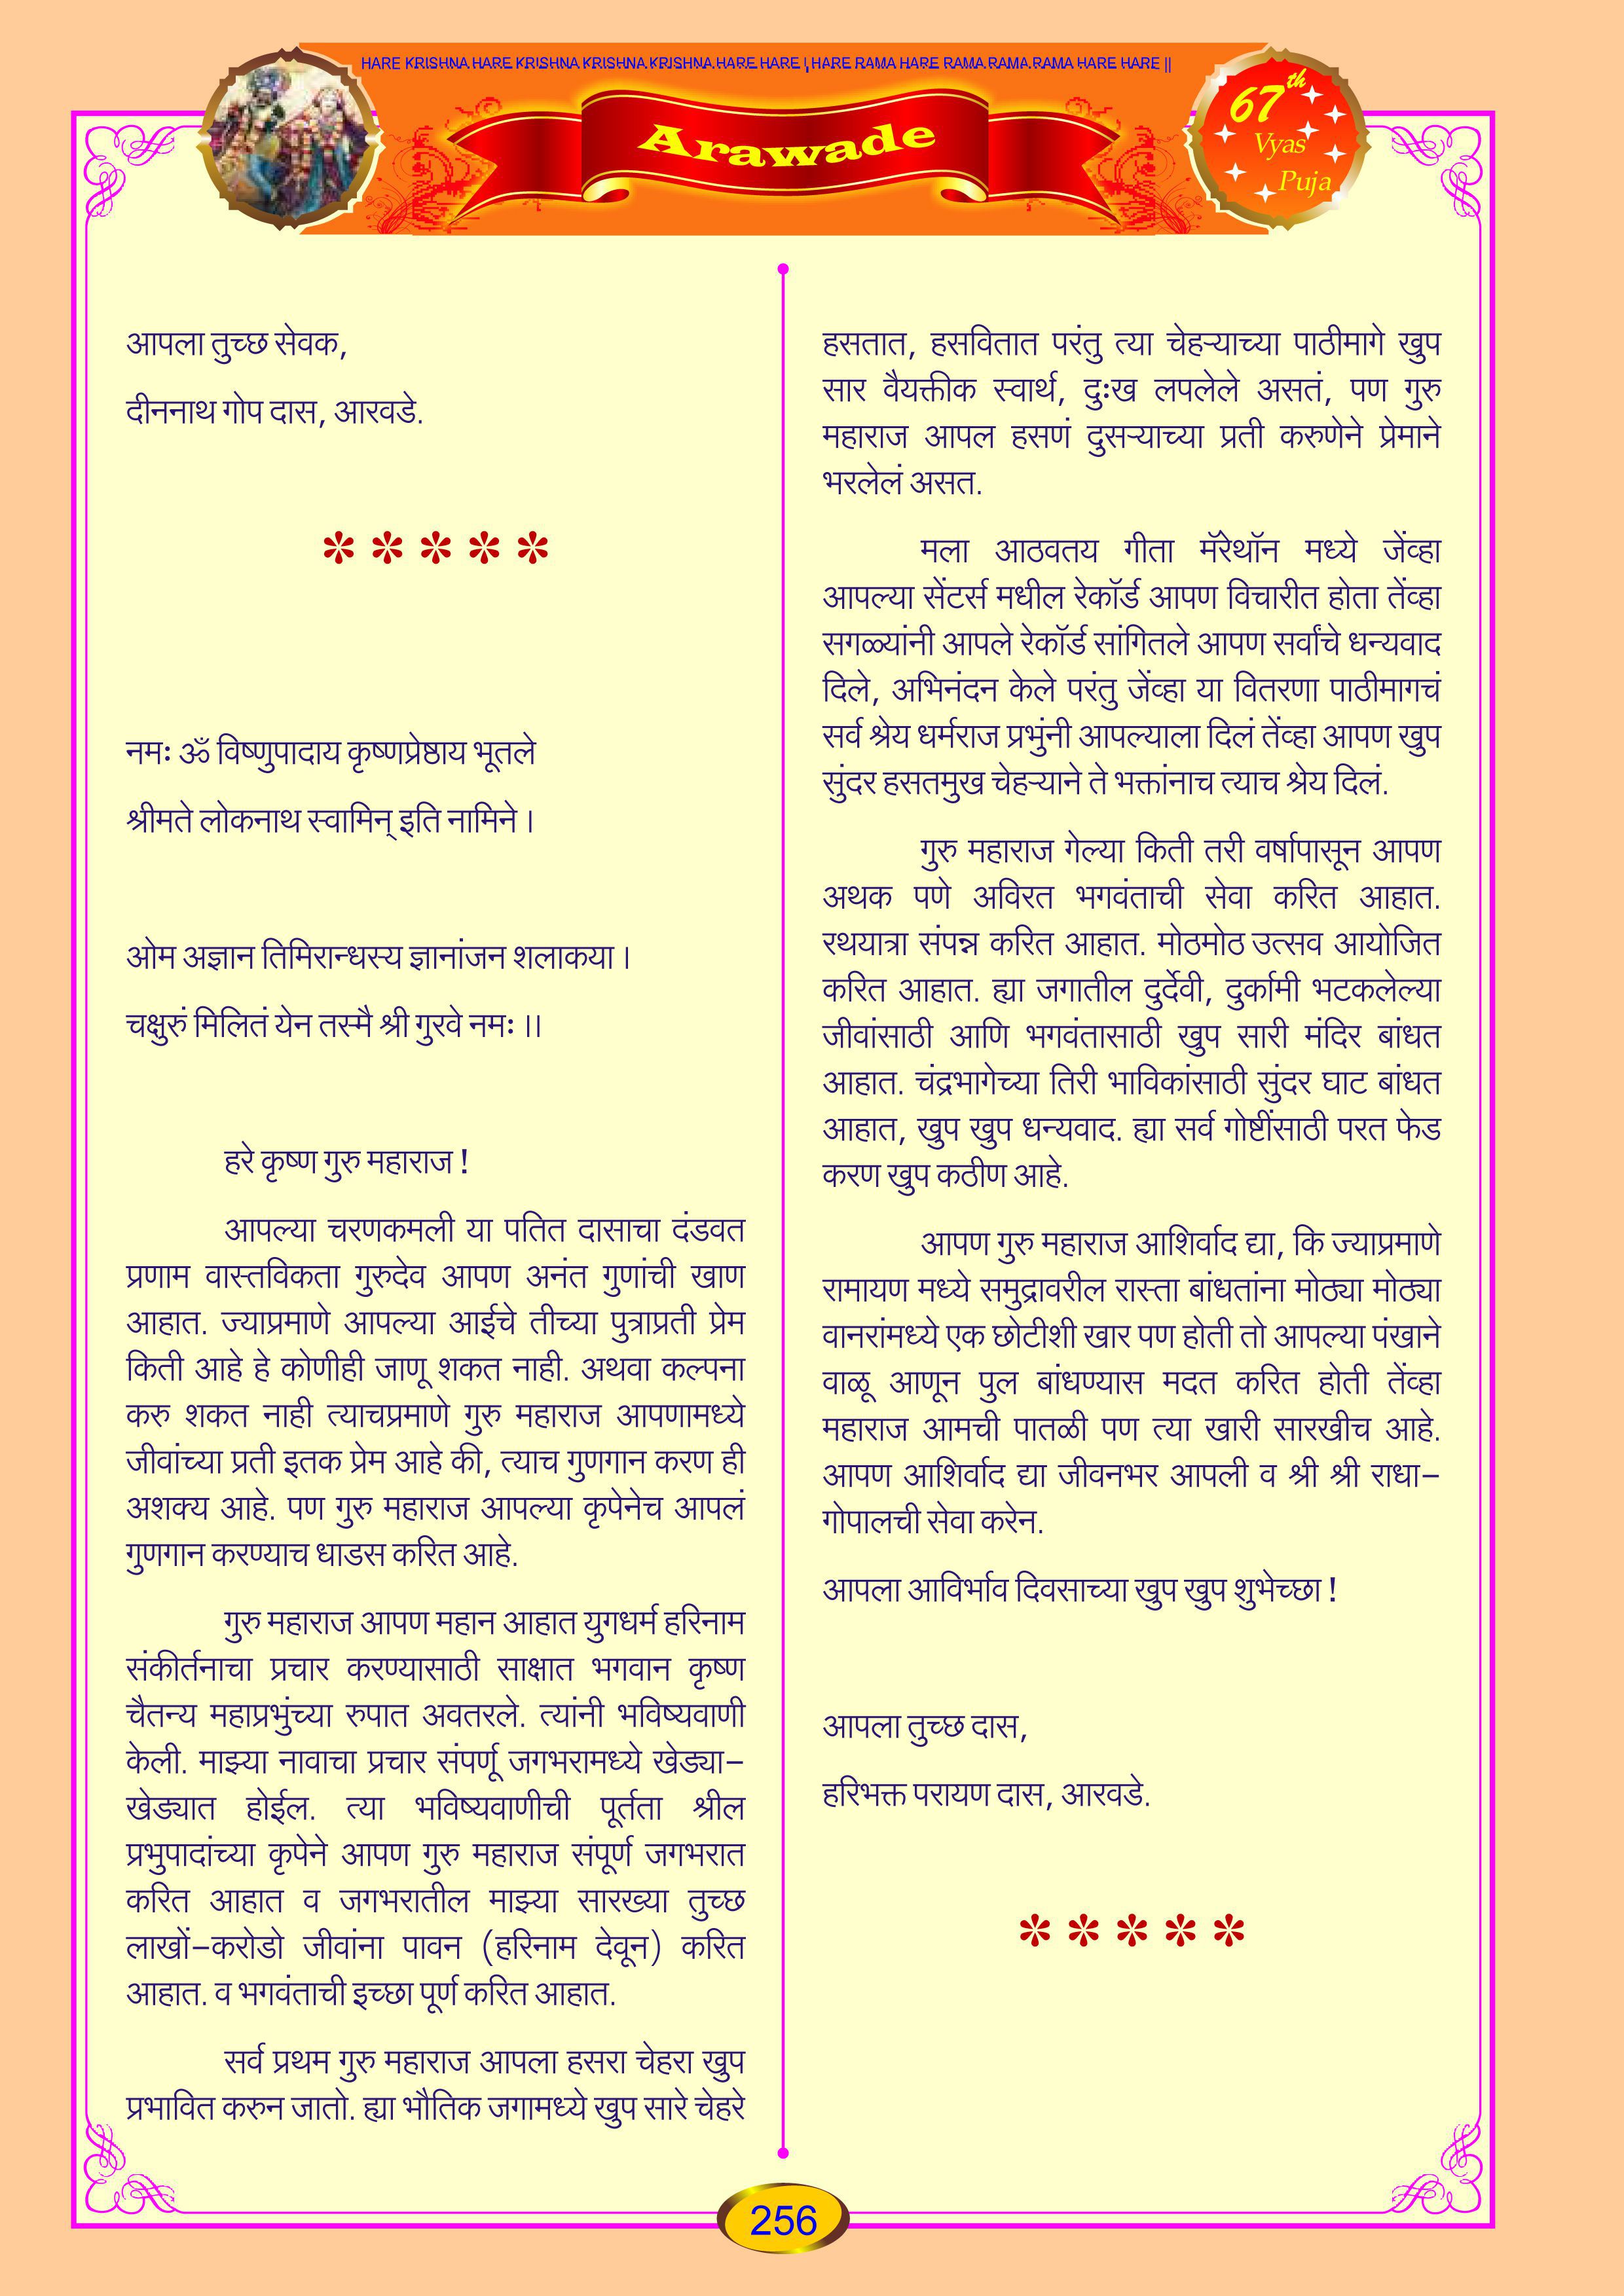 HARE KRISHNA HARE KRISHNA KRISHNA KRISHNA HARE HARE | HARE RAMA HARE RAMA RAMA RAMA HARE HARE ||
Arawade
67th
Vyas
Puja
आपला तुच्छ सेवक,
दीननाथ गोप दास, आरवडे.
* * * * *
नमः ॐ विष्णुपादाय कृष्णप्रेष्ठाय भूतले
श्रीमते लोकनाथ स्वामिन् इति नामिने ।
ओम अज्ञान तिमिरान्धस्य ज्ञानांजन शलाकया ।
चक्षुरुं मिलितं येन तस्मै श्री गुरवे नमः ।।
हरे कृष्ण गुरु महाराज !
आपल्या चरणकमली या पतित दासाचा दंडवत
प्रणाम वास्तविकता गुरुदेव आपण अनंत गुणांची खाण
आहात. ज्याप्रमाणे आपल्या आईचे तीच्या पुत्राप्रती प्रेम
किती आहे हे कोणीही जाणू शकत नाही. अथवा कल्पना
करु शकत नाही त्याचप्रमाणे गुरु महाराज आपणामध्ये
जीवांच्या प्रती इतक प्रेम आहे की, त्याच गुणगान करण ही
अशक्य आहे. पण गुरु महाराज आपल्या कृपेनेच आपलं
गुणगान करण्याच धाडस करित आहे.
गुरु महाराज आपण महान आहात युगधर्म हरिनाम
संकीर्तनाचा प्रचार करण्यासाठी साक्षात भगवान कृष्ण
चैतन्य महाप्रभुंच्या रुपात अवतरले. त्यांनी भविष्यवाणी
केली. माझ्या नावाचा प्रचार संपर्णू जगभरामध्ये खेड्या-
खेड्यात होईल. त्या भविष्यवाणीची पूर्तता श्रील
प्रभुपादांच्या कृपेने आपण गुरु महाराज संपूर्ण जगभरात
करित आहात व जगभरातील माझ्या सारख्या तुच्छ
लाखों-करोडो जीवांना पावन (हरिनाम देवून) करित
आहात. व भगवंताची इच्छा पूर्ण करित आहात.
सर्व प्रथम गुरु महाराज आपला हसरा चेहरा खुप
प्रभावित करुन जातो. ह्या भौतिक जगामध्ये खुप सारे चेहरे
हसतात, हसवितात परंतु त्या चेहऱ्याच्या पाठीमागे खुप
सार वैयक्तीक स्वार्थ, दुःख लपलेले असतं, पण गुरु
महाराज आपल हसणं दुसऱ्याच्या प्रती करुणेने प्रेमाने
भरलेलं असत.
मला आठवतय गीता मॅरेथॉन मध्ये जेंव्हा
आपल्या सेंटर्स मधील रेकॉर्ड आपण विचारीत होता तेंव्हा
सगळ्यांनी आपले रेकॉर्ड सांगितले आपण सर्वांचे धन्यवाद
दिले, अभिनंदन केले परंतु जेंव्हा या वितरणा पाठीमागचं
सर्व श्रेय धर्मराज प्रभुंनी आपल्याला दिलं तेंव्हा आपण खुप
सुंदर हसतमुख चेहऱ्याने ते भक्तांनाच त्याच श्रेय दिलं.
गुरु महाराज गेल्या किती तरी वर्षापासून आपण
अथक पणे अविरत भगवंताची सेवा करित आहात.
रथयात्रा संपन्न करित आहात. मोठमोठ उत्सव आयोजित
करित आहात. ह्या जगातील दुर्देवी, दुर्कामी भटकलेल्या
जीवांसाठी आणि भगवंतासाठी खुप सारी मंदिर बांधत
आहात. चंद्रभागेच्या तिरी भाविकांसाठी सुंदर घाट बांधत
आहात, खुप खुप धन्यवाद. ह्या सर्व गोष्टींसाठी परत फेड
करण खुप कठीण आहे.
आपण गुरु महाराज आशिर्वाद द्या, कि ज्याप्रमाणे
रामायण मध्ये समुद्रावरील रास्ता बांधतांना मोठ्या मोठ्या
वानरांमध्ये एक छोटीशी खार पण होती तो आपल्या पंखाने
वाळू आणून पुल बांधण्यास मदत करित होती तेंव्हा
महाराज आमची पातळी पण त्या खारी सारखीच आहे.
आपण आशिर्वाद द्या जीवनभर आपली व श्री श्री राधा-
गोपालची सेवा करेन.
आपला आविर्भाव दिवसाच्या खुप खुप शुभेच्छा !
आपला तुच्छ दास,
हरिभक्त परायण दास, आरवडे.
* * * * *
256